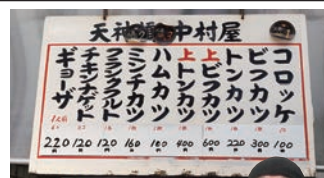 天神橋 中村屋
コロッケ 100
ビフカツ 300
トンカツ 220
上ビフカツ 600
上トンカツ 400
ハムカツ 100
ミンチカツ 160
フランクフルト 120
チキンナゲット 120
ギョーザ 220